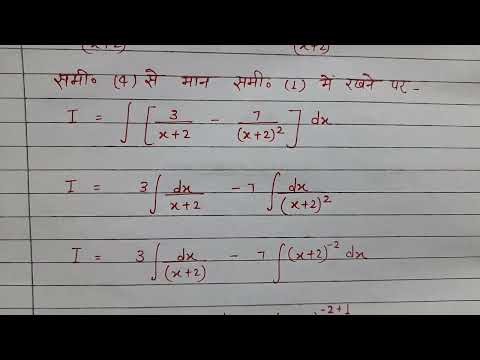 (x+2) (x+2)
समी० (4) से मान समी० (1) में रखने पर -
I = ∫ [ 3/(x+2) - 7/(x+2)² ] dx
I = 3∫ dx/(x+2) - 7 ∫ dx/(x+2)²
I = 3∫ dx/(x+2) - 7 ∫ (x+2)⁻² dx
-2+1